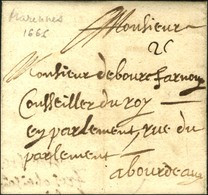 Marennes
1666
Monsieur
Monsieur debourcfarnou
Conseiller du roy
en parlement, rue du
parlement
abourdeau